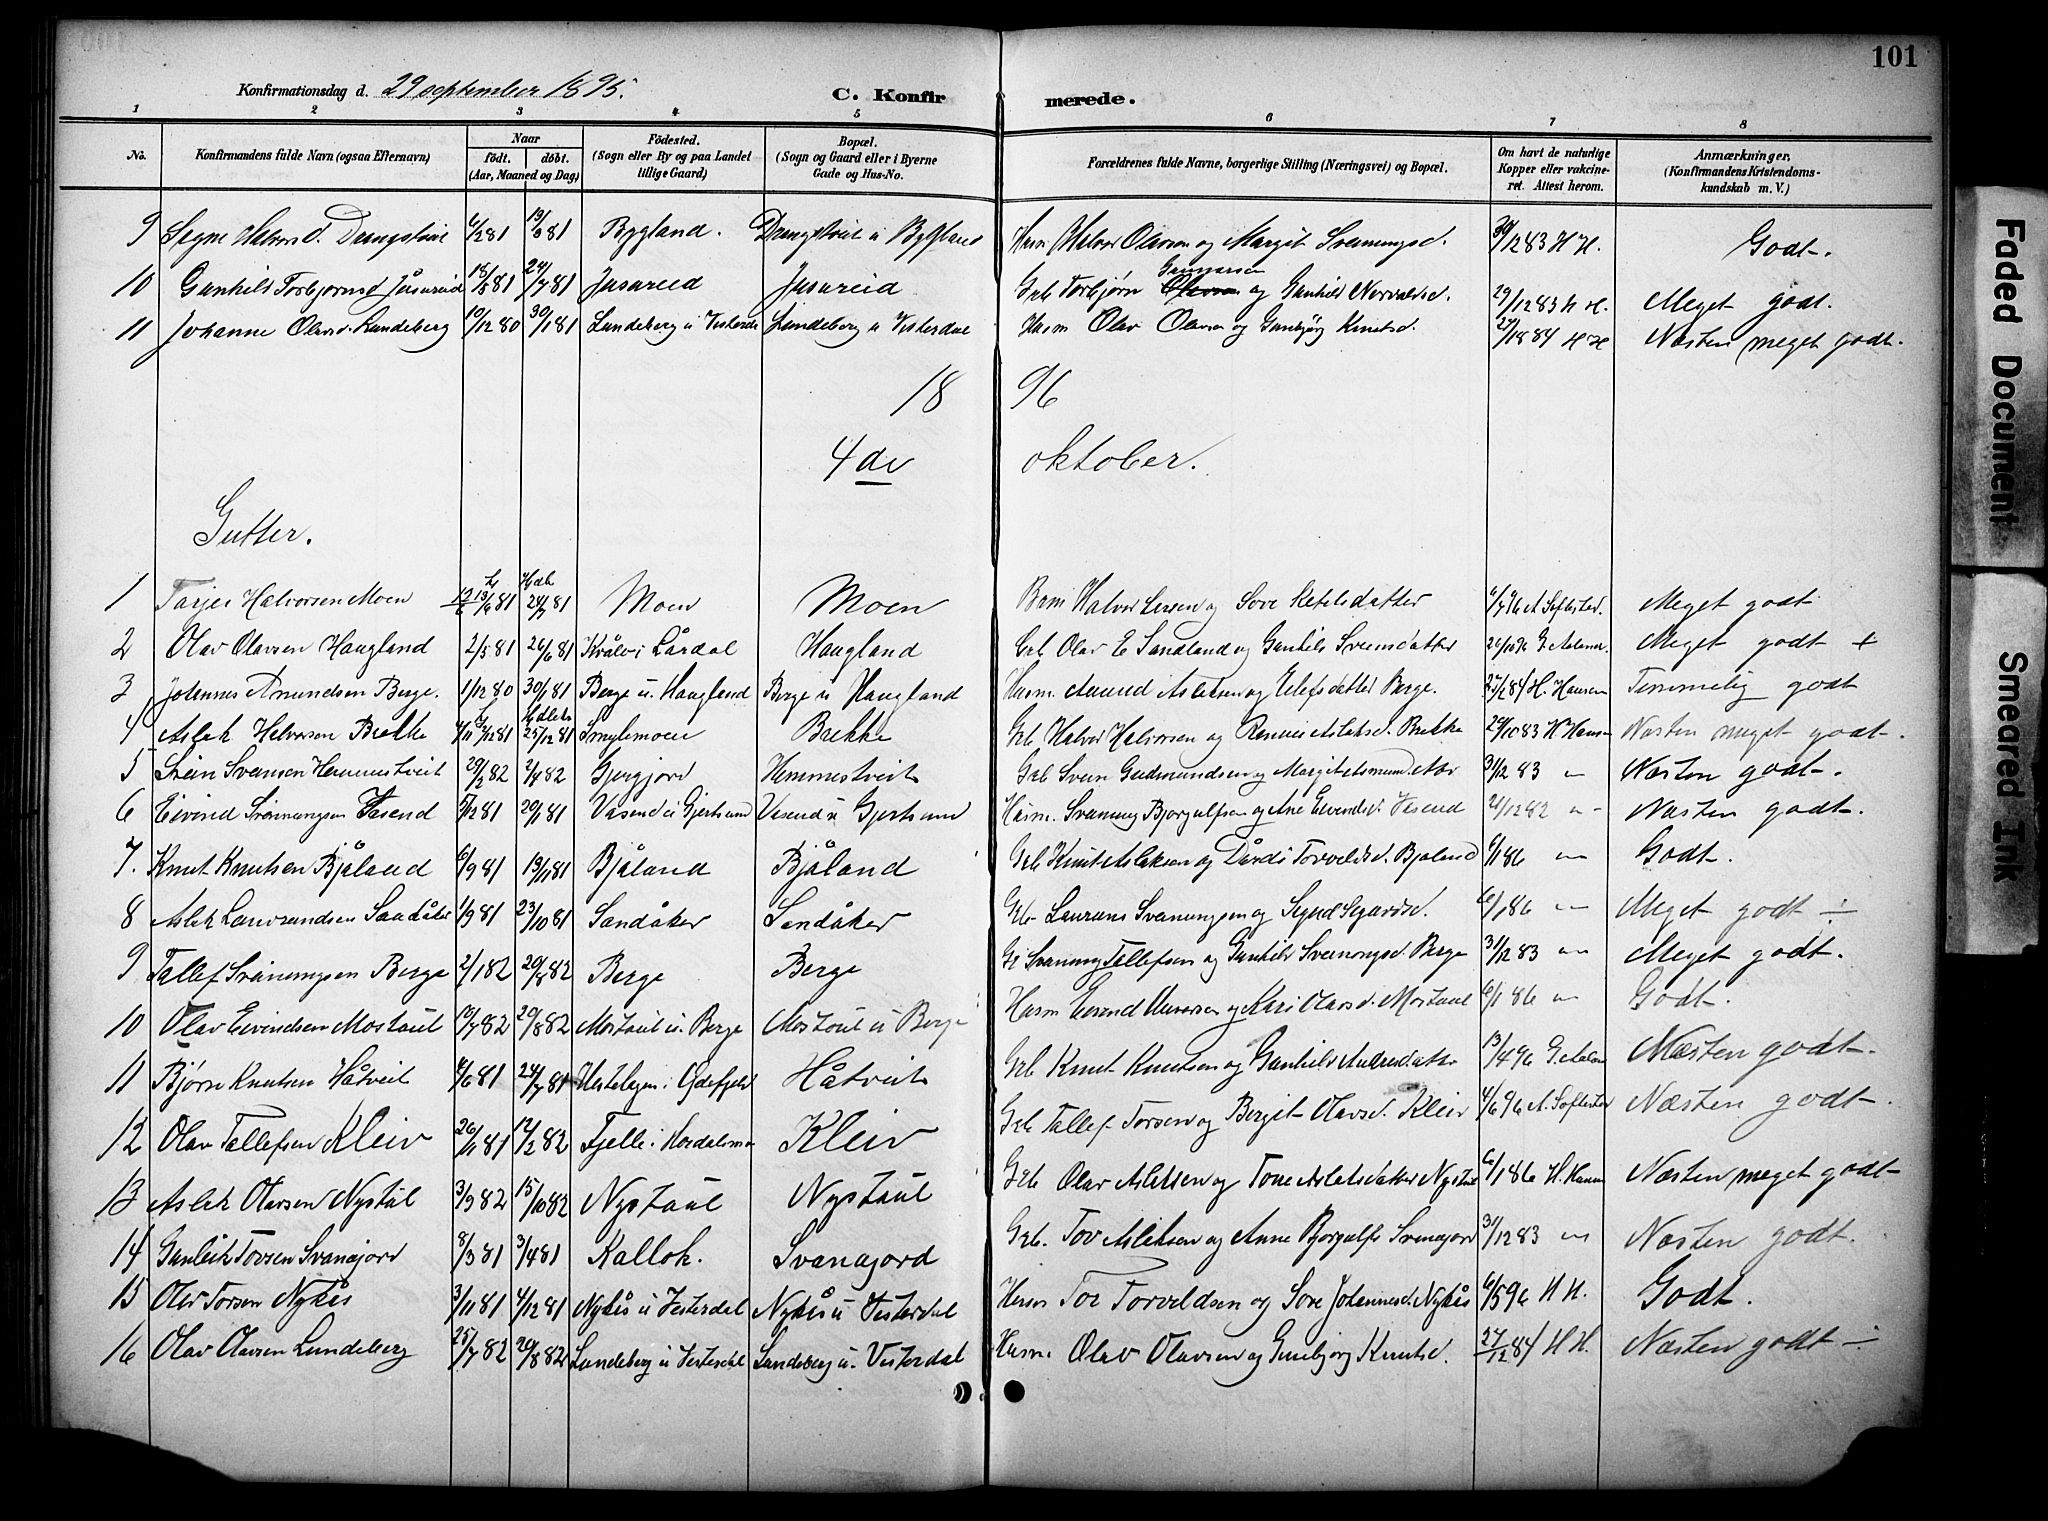 101
Konfirmationsdag d. 29 september 1895.
C. Konfirmerede.
1 2 3 4 5 6 7 8
No. Konfirmandens fulde Navn (ogsaa Efternavn) Naar født. døbt. (Aar, Maaned og Dag) Födested. (Sogn eller By og paa Landet tillige Gaard) Bopæl. (Sogn og Gaard eller i Byerne Gade og Hus-No. Forældrenes fulde Navne, borgerlige Stilling (Næringsvei) og Bopæl. Om havt de naturlige Kopper eller vakcineret. Attest herom. Anmærkninger. (Konfirmandens Kristendomskundskab m. V.)
9 Signe Halvorsd. Drengstveit 6/2 81 13/3 81 Bygland. Drengstveit u Bygland Husm Halvor Olavsen og Margit Sveinungsd. 30/12 83 H H. Godt.
10 Gunhild Torbjørnsd Jusureid 18/5 81 24/7 81 Jusureid Jusureid Grb Torbjørn Gunnarsen og Gunhild Norvaldsd. 29/12 83 H H. Meget godt.
11 Johanne Olavsd. Lundeberg 10/12 80 30/1 81 Lundeberg u Vesterda Lundeberg u Vesterdal Husm Olav Olavsen og Gunbjørg Knutsd. 27/12 84 H H Næsten meget godt.
18 96
4de oktober.
Gutter.
1 Tarjei Halvorsen Moen 13/6 81 24/7 81 Moen Moen Halvor og Sove Ketilsdatter 6/7 96 A Soflested. Meget godt
2 Olav Olavsen Haugland 2/5 81 26/6 81 Kvålo i Lårdal Haugland Grb. Olav E Sandland og Gunhild Sveinsdatter Meget godt +
3 Johannes Amundsen Berge. 1/12 80 30/1 81 Berge u. Haugland Berge u Haugland Husm. Aamund Aslaksen og Berge. 27/12 84 H. Hansen Temmelig godt
4 Aslak Halvorsen Brekke 4/11 81 25/12 81 Smylemoen Brekke Grb Halvor Halvorsen og Rannei Aslaksd. Brekke 29/10 83 H Hansen Næsten meget godt.
5 Svein Svensen Hemmestveit 29/2 82 2/4 82 Gjergjord Hemmestveit Grb Svein Gudmundsen og Margit 31/12 83 " Næsten godt.
6 Eivind Sveinungsen Vasend 5/12 81 29/1 81 Vasend u Gjertsund Vasend u Gjertsund Husm. Sveinung Bjorgulfsen og Ane Eivindsd. Vasend 21/12 82 " Næsten godt.
7. Knut Knutsen Bjåland 6/9 81 13/11 81 Bjåland Bjåland Grb Knut Aslaksen og Dårdi Torvaldsd. Bjaland 6/1 86 " Godt.
8 Aslak Lavransdsen Sandåker 1/9 81 23/10 81 Sandåker Sandåker Grb Laurans Svenungsen og Signe Sigurdsd. 6/1 86 " Meget godt ÷
9 Tallef Sveinungsen Berge 2/1 82 20/8 82 Berge Berge G. Svenung Tallefsen og Gunhild Sveinungsd. Berge 31/12 83 " Meget godt.
10 Olav Eivindsen Mostaul 10/7 82 20/8 82 Mostaul u. Berge Mostaul u Berge Husm Eivend og Kari Olavsd. Mostaul 6/1 86 " Godt.
11 Bjørn Knutsen Håtveit 4/6 81 24/7 81 Håtveit Grb Knut Knutsen og Gunhild 13/4 96 Næsten godt.
12 Olav Tallefsen Kleiv 26/11 81 12/2 82 Fjelle i Kleiv Grb Tallef Torsen og Bergit Olavsd. Kleiv 4/6 96 A. Soflested Næsten godt.
13 Aslak Olavsen Nystål 3/9 82 15/10 82 Nystaul Nystaul Grb Olav Aslaksen og Tone Aslaksdatter Nystul 6/1 86 H. Hansen Næsten meget godt
14 Gunleik Tovsen Svanajord 8/3 81 3/4 81 Kallok. Svanajord Grb. Tov Aslaksen og Anne Bjorgulfs Svenajord 31/12 83 " Næsten godt.
15 Olav Torsen Nykås 3/11 81 4/12 81 Nykås u Vesterdal Nykås u Vesterdal Husm Tor Torvaldsen og Sove Johannesd. Nykås 6/5 96 H H. Godt.
16 Olav Olavsen Lundeberg 25/7 82 20/8 82 Lundeberg u Vesterdal Lundeberg u. Vesterdal Husm Olav Olavsen og Gunbjørg Knutsd. 27/12 84 H H. Næsten godt ÷
Faded Document
Smeared Ink